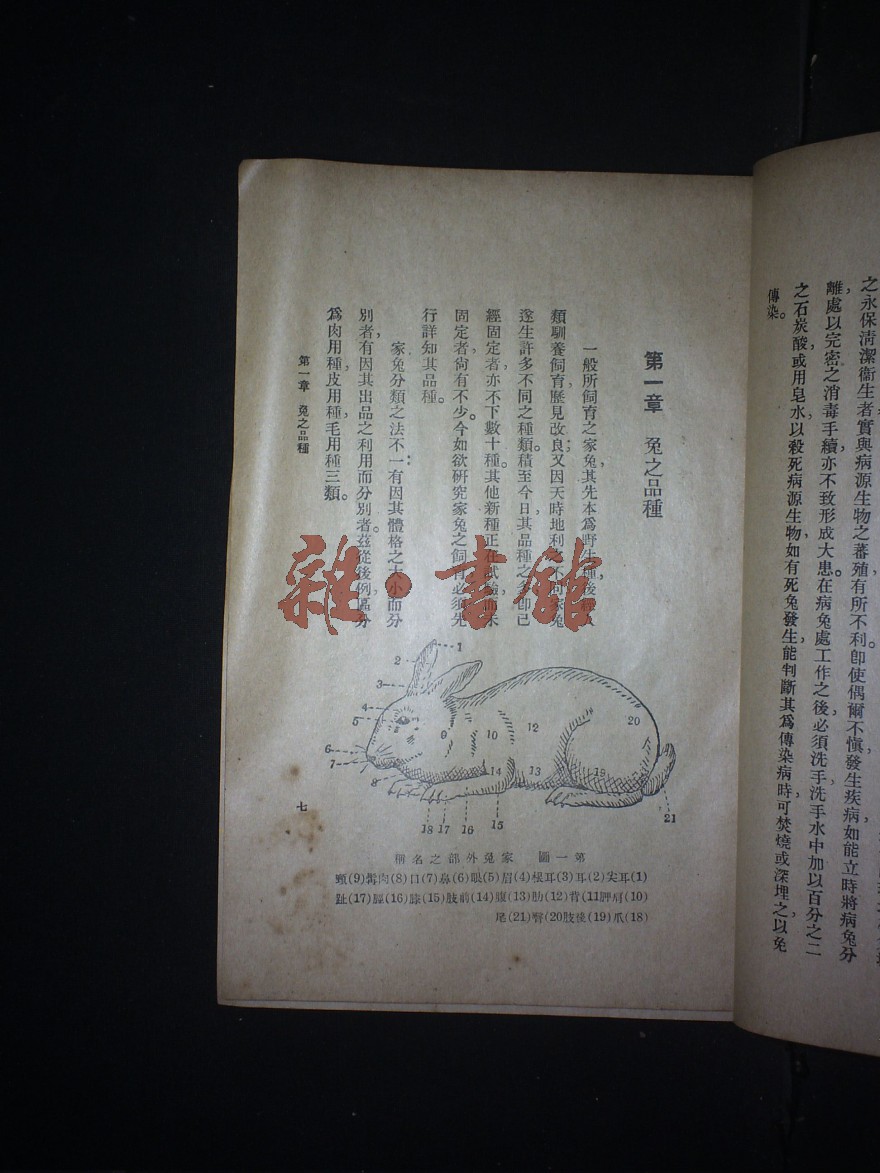 之永保淸潔衞生者實與病源生物之蕃殖有所不利。卽使偶爾不愼發生疾病如能立時將病兔分
離處以完密之消毒手續亦不致形成大患。在病兔處工作之後必須洗手洗手水中加以百分之二
之石炭酸或用皂水以殺死病源生物如有死兔發生能判斷其爲傳染病時可焚燒或深埋之以免
傳染。
第一章 兔之品種
一般所飼育之家兔其先本爲野生種後
類馴養飼育歷見改良;又因天時地利之不同家兔
遂生許多不同之種類。積至今日其品種之多卽已
經固定者亦不下數十種。其他新種正在試驗而未
固定者尙有不少。今如欲硏究家兔之飼育必須先
行詳知其品種。
家兔分類之法不一:有因其體格之大小而分
別者有因其出品之利用而分別者。茲從後例區分
爲肉用種皮用種毛用種三類。
1
2
3
4
5
6
7
8
9
10
12
13
14
15
16
17
18
19
20
21
第一圖 家兔外部之名稱
(1)耳尖(2)耳(3)耳根(4)眉(5)眼(6)鼻(7)口(8)肉髯(9)頸
(10)肩胛(11)背(12)肋(13)腹(14)前肢(15)膝(16)脛(17)趾
(18)爪(19)後肢(20)臀(21)尾
第一章 兔之品種
七
雜·書館